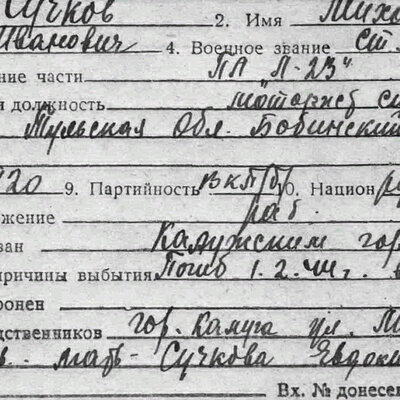 Сучков 2. Имя Миха
Иванович 4. Военное звание ст
ние части ПЛ Л-23"
и должность моторист с
Тульская Обл. Бабынский
920 9. Партийность ВКП/б/ 0. Национ ру
жение раб.
ван Калужским гор
причины выбытия Погиб 1.2.44г. в
ронен
дственников гор. Калуга ул. М
в. мать - Сучкова Евдоки
Вх. № донесен